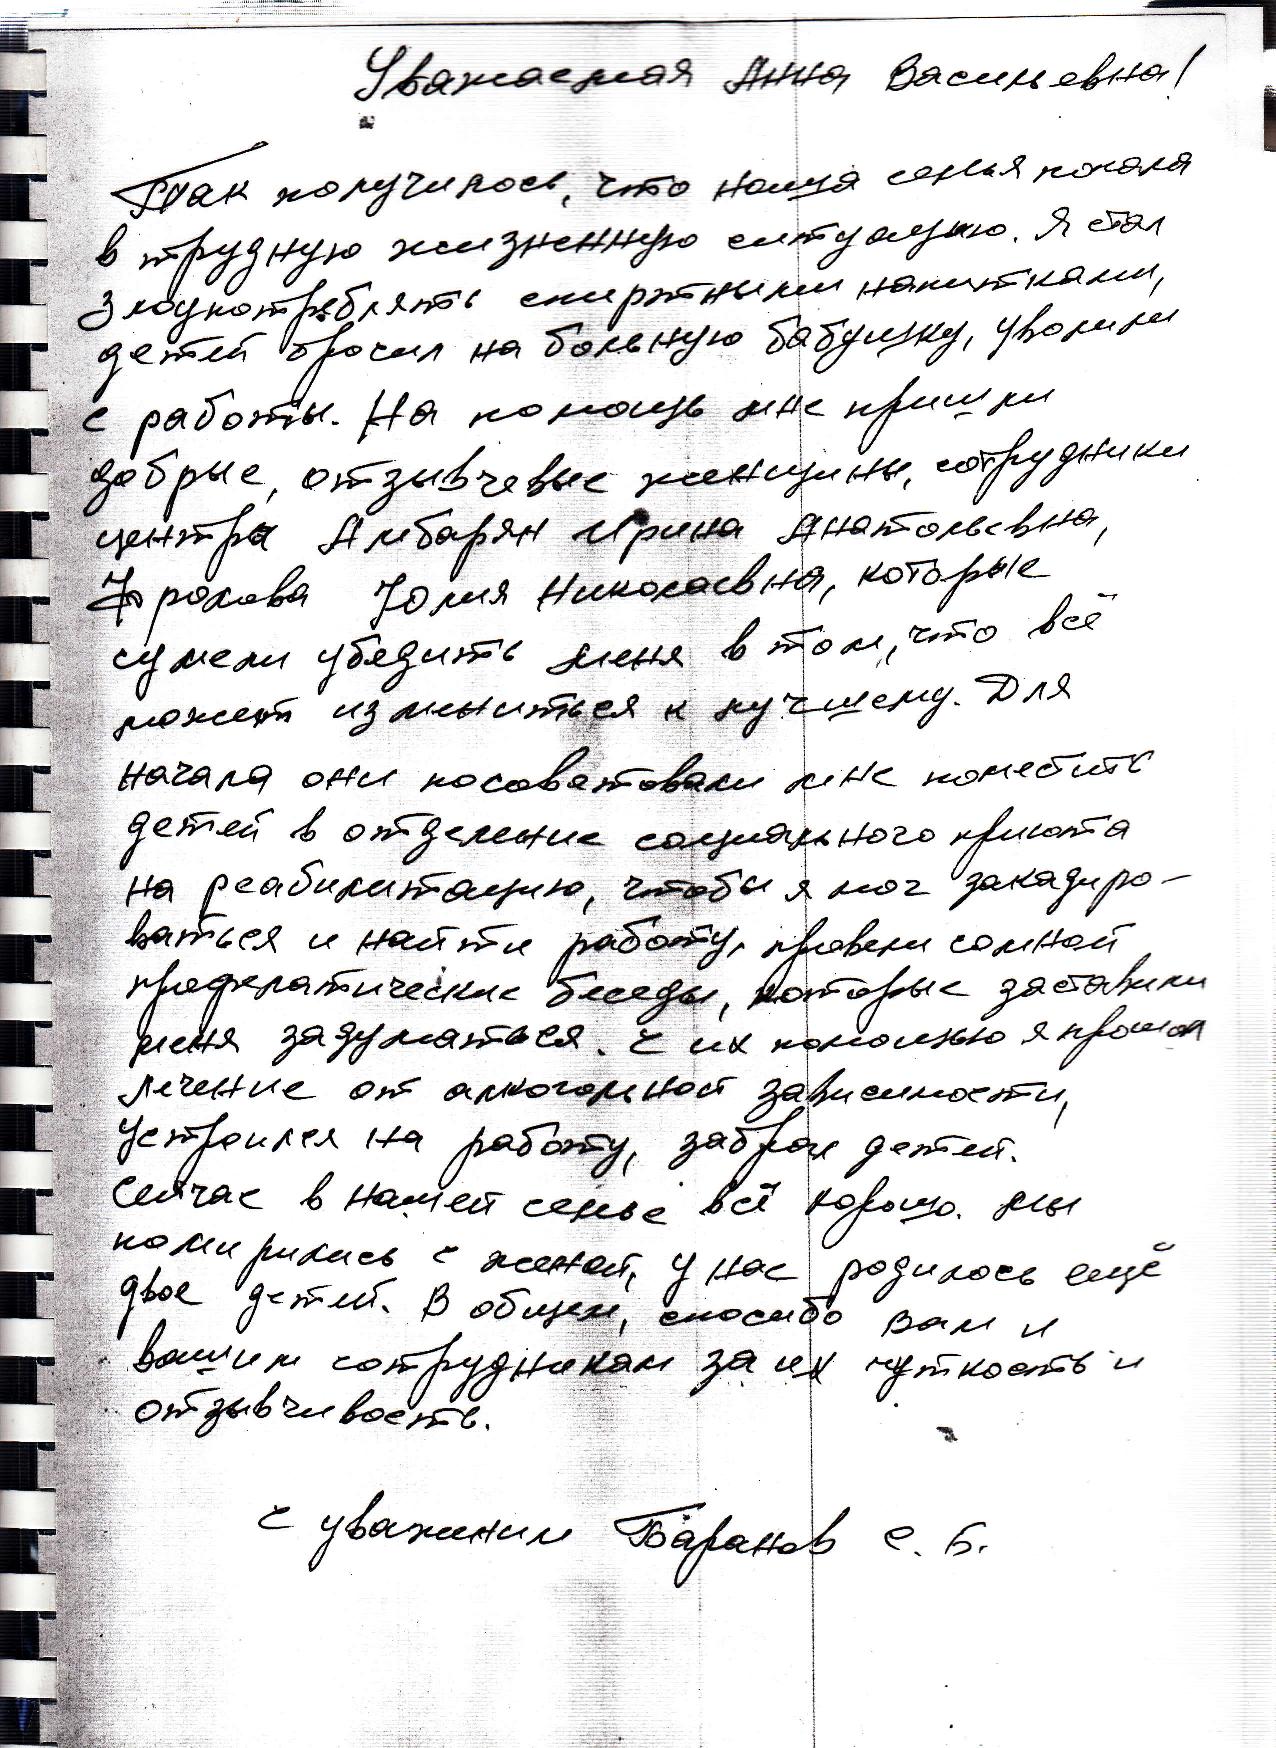 Уважаемая Анна Васильевна!
Так получилось, что наша семья попала
в трудную жизненную ситуацию. Я стал
злоупотреблять спиртными напитками,
детей бросил на больную бабушку, уволили
с работы. На помощь мне пришли
добрые, отзывчевые женщины, сотрудники
центра Амбарян Ирина Анатольевна,
Фролова Юлия Николаевна, которые
сумели убедить меня в том, что всё
может измениться к лучшему. Для
начала они посоветовали мне поместить
детей в отделение социального приюта
на реабилитацию, чтобы я мог закадиро-
ваться и найти работу, провели со мной
профилатические беседы, которые заставили
меня задуматься. С их помощью я прошол
лечение от алкогольной зависимости,
устроился на работу, забрал детей.
Сейчас в нашей семье всё хорошо. Мы
помирились с женой, у нас родилось ещё
двое детей. В общем, спасибо вам и
вашим сотрудникам за их чуткость и
отзывчивость.
С уважением Баранов С. Б.